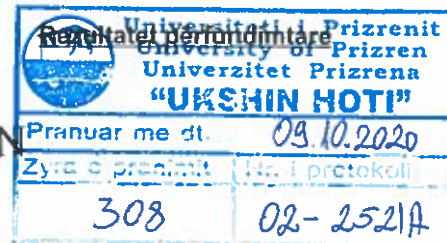 Rezultatet përfundimtare
Universiteti i Prizrenit
University of Prizren
Univerzitet Prizrena
“UKSHIN HOTI”
Pranuar me dt. 09.10.2020
Zyra e pranimit Nr. i protokoli
308 02-252/A